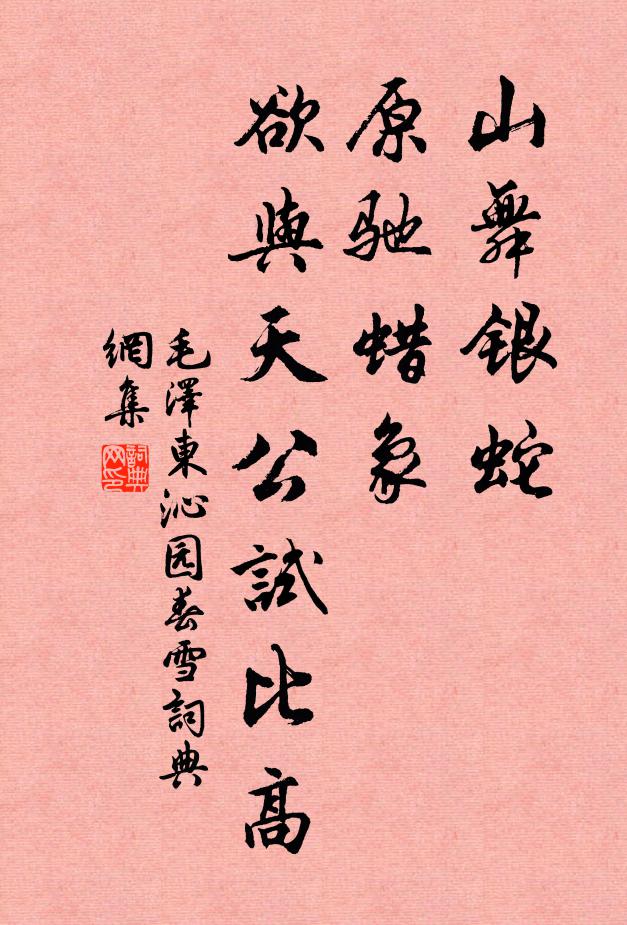 山舞银蛇
原驰蜡象
欲與天公試比高
毛澤東沁园春雪詞典
網集
詞典
网印